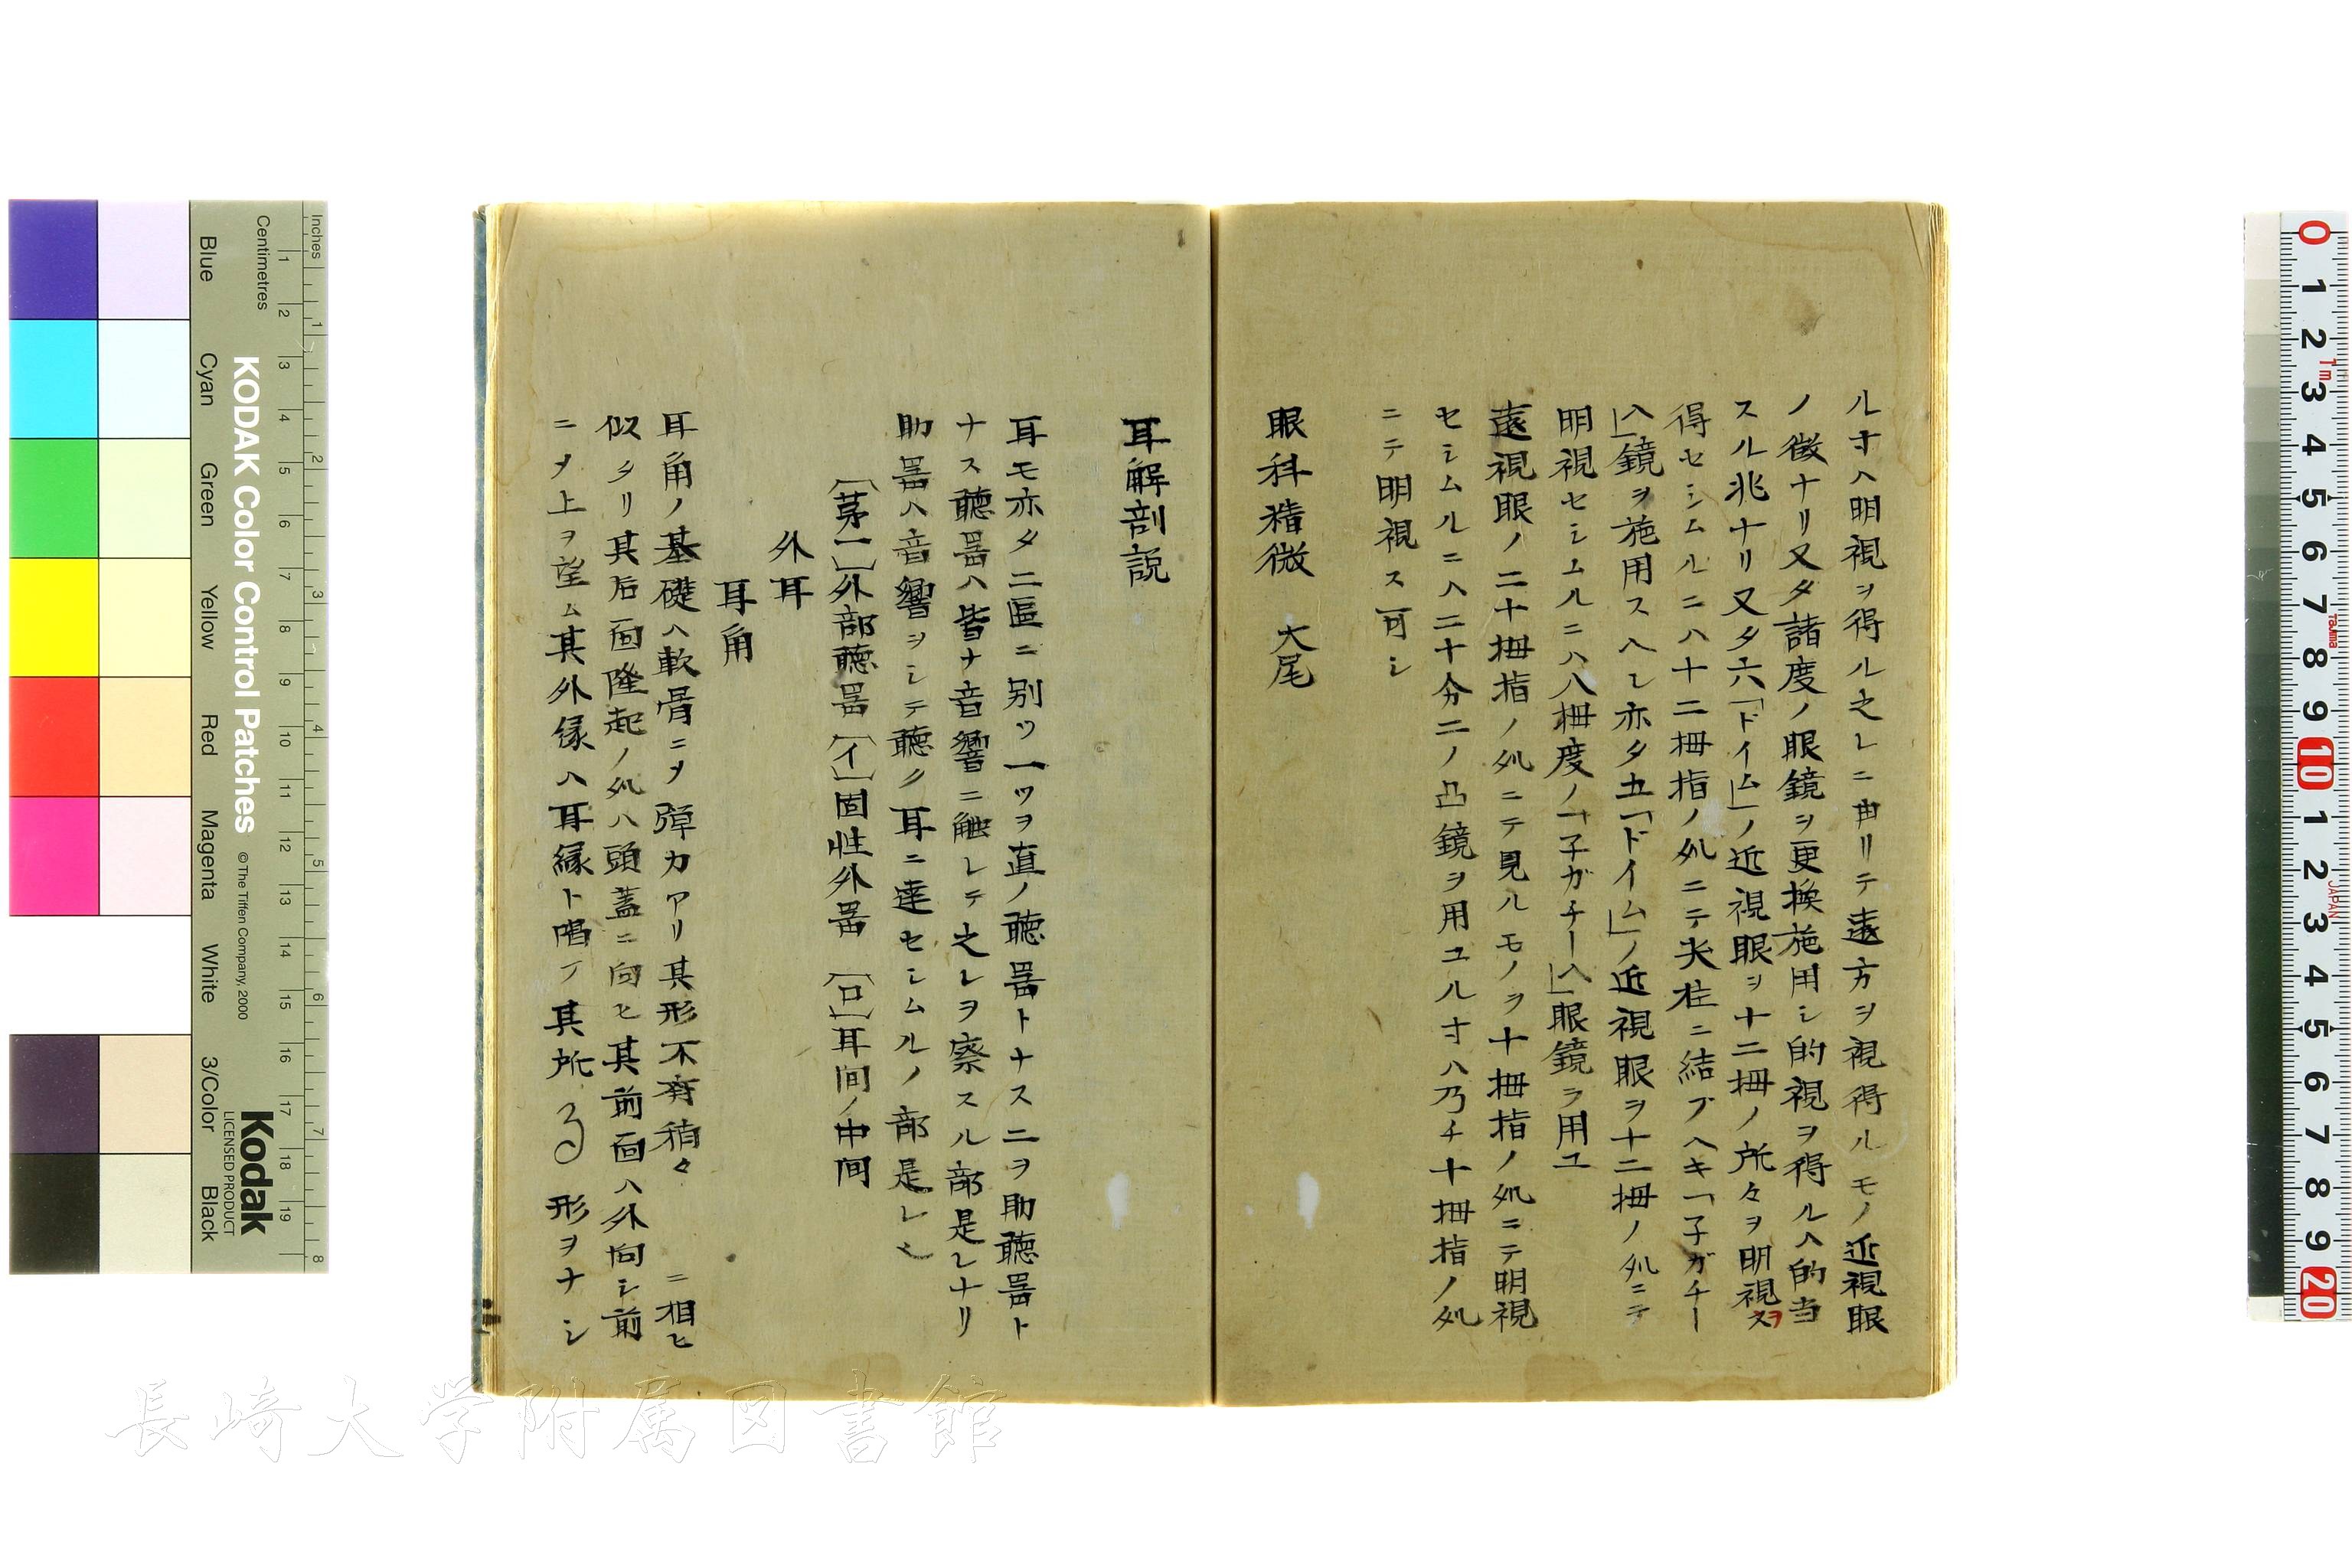 ル寸ハ明視ヲ得ル之レニ由リテ遠方ヲ視得ルモノ近視眼
ノ徴ナリ又タ諸度ノ眼鏡ヲ更換施用シ的視ヲ得ルハ的当
スル兆ナリ又タ六「ドイム」ノ近視眼ヲ十二拇ノ所々ヲ明視
得セシムルニハ十二拇指ノ処ニテ尖柱ニ結ブヘキ「子ガチー
ハ」鏡ヲ施用スヘシ亦タ五「ドイム」ノ近視眼ヲ十二拇ノ処ニテ
明視セシムルニハ八拇度ノ「子ガチーハ」眼鏡ヲ用ユ
遠視眼ノ二十拇指ノ処ニテ見ルモノヲ十拇指ノ処ニテ明視
セシムルニハ二十分二ノ凸鏡ヲ用ユル寸ハ乃チ十拇指ノ処
ニテ明視ス可シ
眼科精微 大尾
耳解剖説
耳モ亦タ二區ニ別ツ一ツヲ直ノ聴器トナス二ヲ助聴器ト
ナス聴器ハ皆ナ音響ニ触レテ之レヲ察スル部是レナリ
助器ハ音響ヲシテ聴ク耳ニ達セシムルノ部是レ也
〔茅一〕外部聴器〔イ〕固性外器〔ロ〕耳間ノ中間
外耳
耳角
耳角ノ基礎ハ軟骨ニヲ弾力アリ其形不斉稍々 ニ相ヒ
似タリ其后面隆起ノ処ハ頭蓋ニ向ヒ其前面ハ外向シ前
ニヲ上ヲ望ム其外縁ハ耳縁ト唱フ其所 形ヲナシ
長崎大学附属図書館
Inches
Centimetres
KODAK Color Control Patches
©The Tiffen Company, 2000
Kodak
LICENSED PRODUCT
Blue
Cyan
Green
Yellow
Red
Magenta
White
3/Color
Black
1 2 3 4 5 6 7 8 9 10 11 12 13 14 15 16 17 18 19
1 2 3 4 5 6 7 8
0 1 2 3 4 5 6 7 8 9 10 1 2 3 4 5 6 7 8 9 20
1m
Tajima
JAPAN